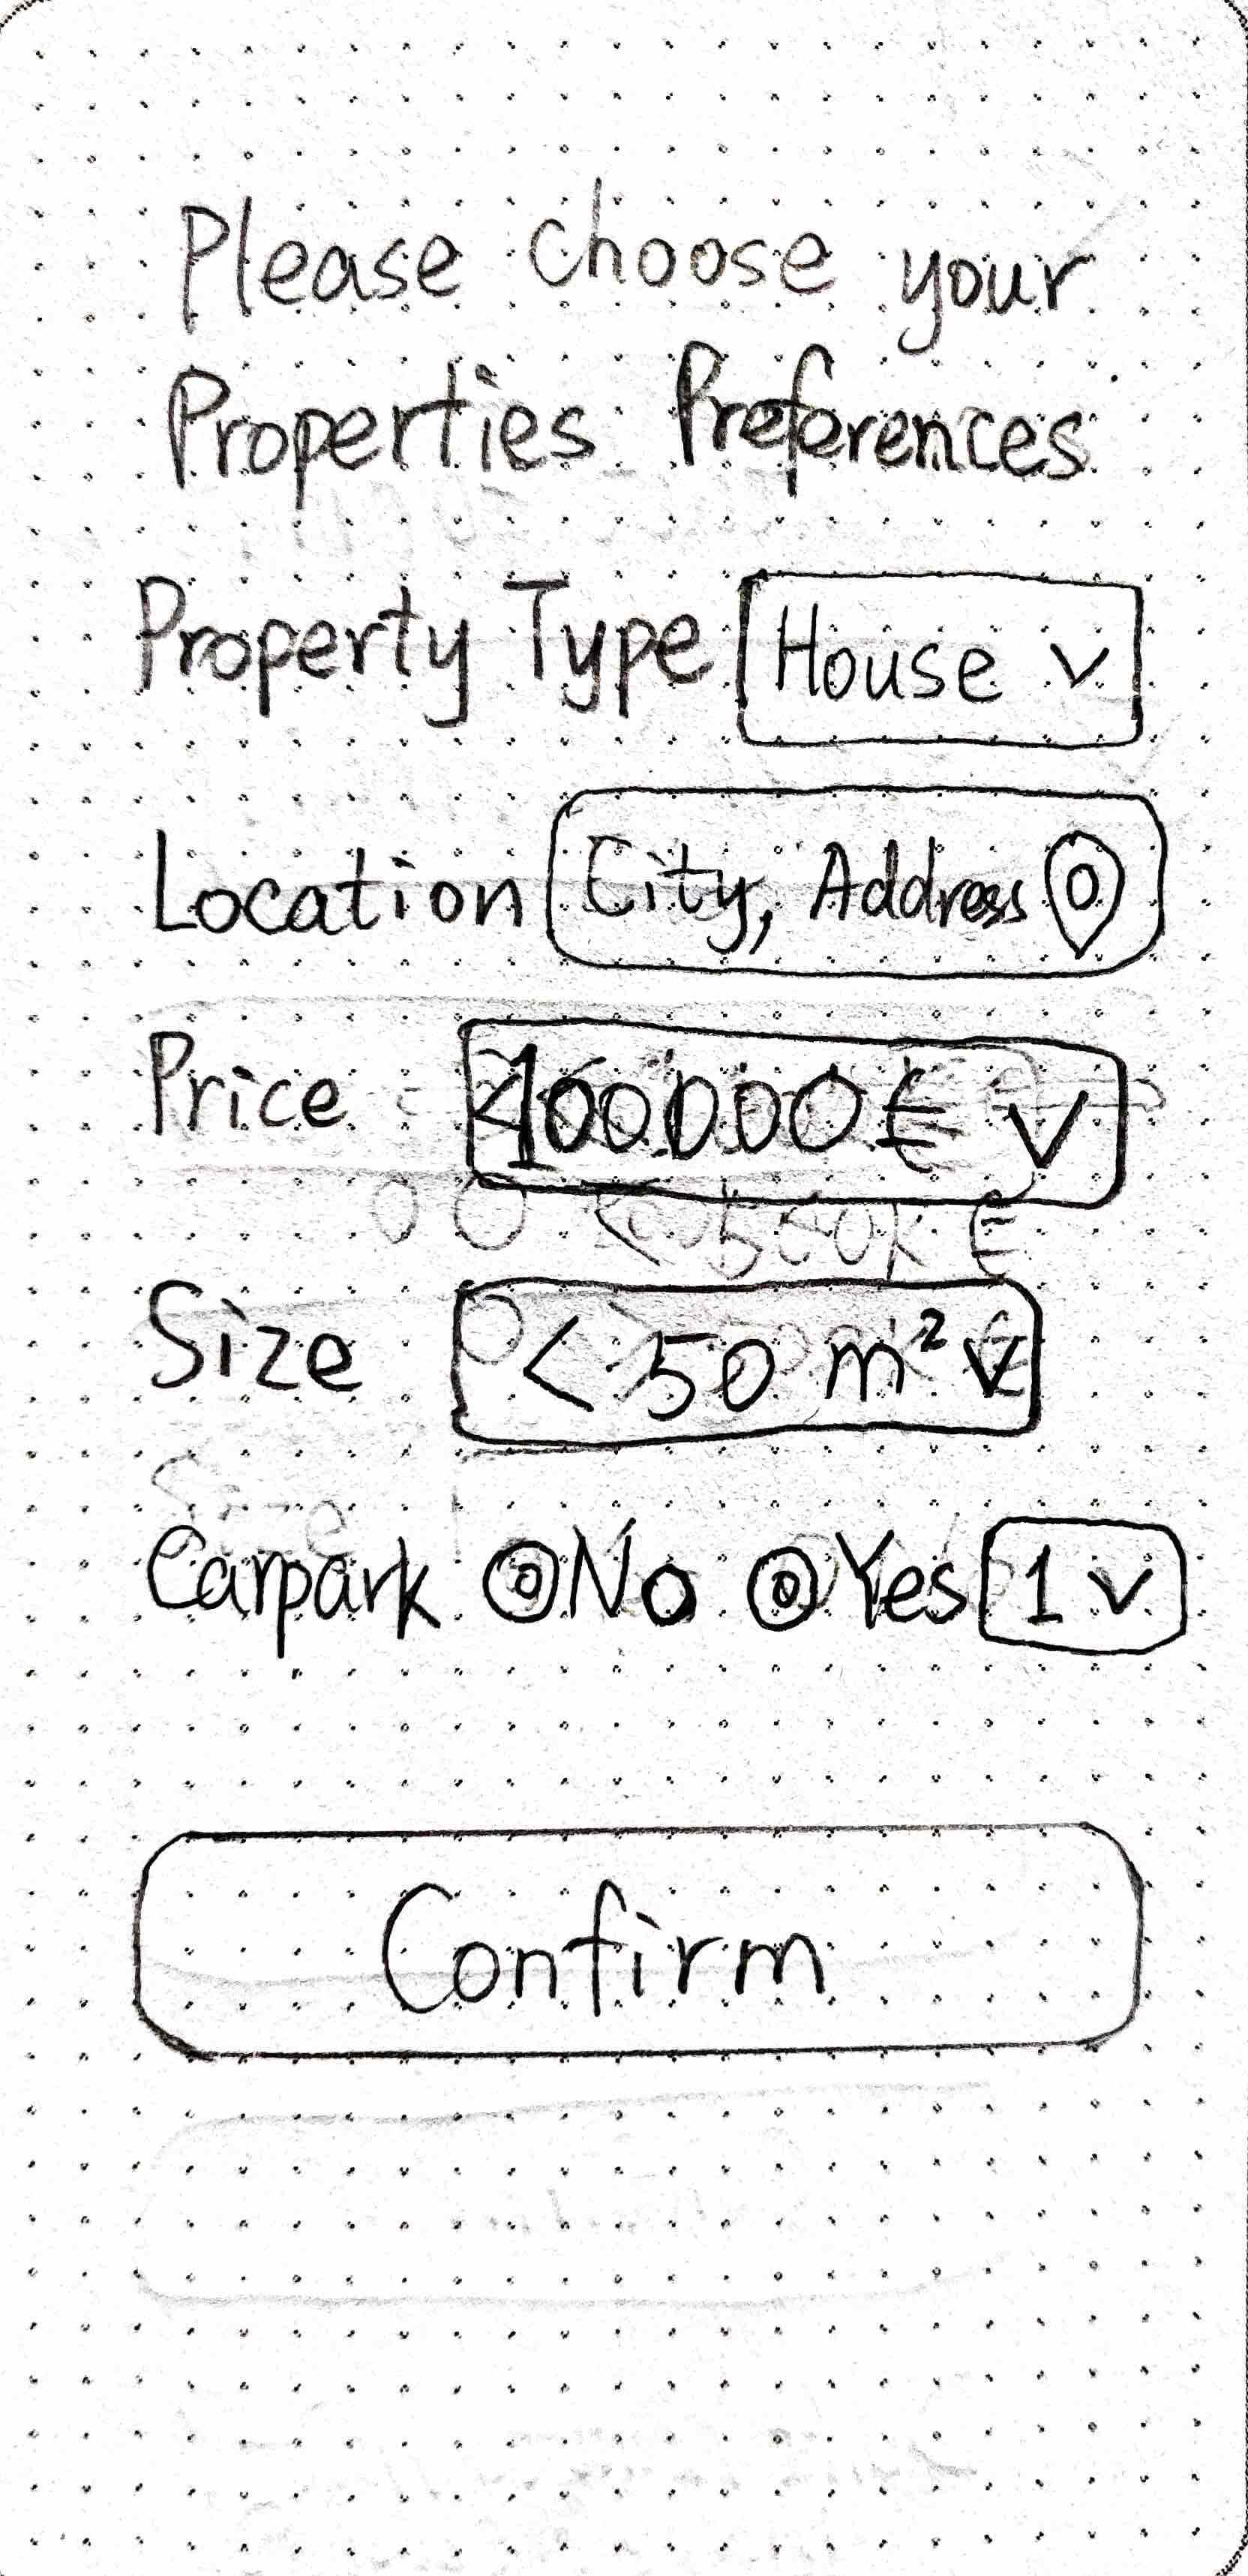 Please choose your
Properties Preferences
Property Type House
Location City, Address
Price <100.000€
< 500k €
Size < 50 m²
Carpark No Yes 1
Confirm